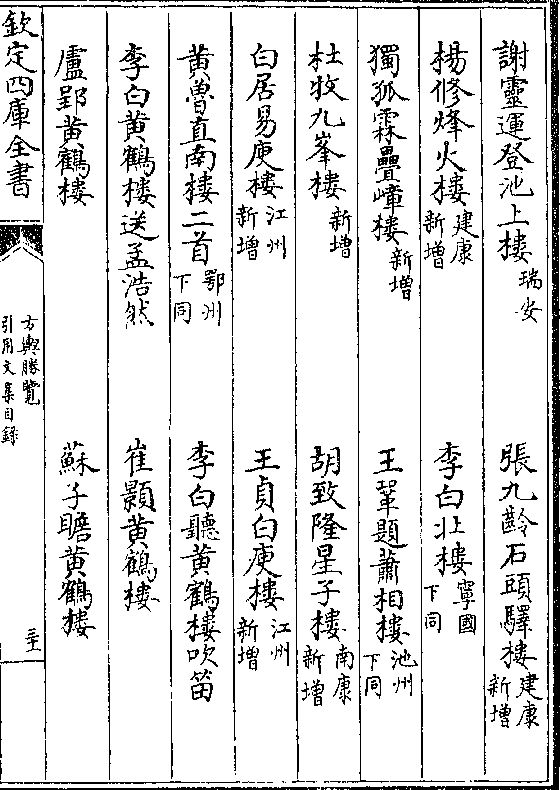 謝靈運登池上樓瑞安 張九齡石頭驛樓建康新增
楊修烽火樓建康新增 李白北樓寧國下同
獨孤霖疊嶂樓新增 王鞏題蕭相樓池州下同
杜牧九峯樓新增 胡致隆星子樓南康新增
白居易庾樓江州新增 王貞白庾樓江州新增
黄魯直南樓二首鄂州下同 李白聽黄鶴樓吹笛
李白黄鶴樓送孟浩然 崔顥黄鶴樓
盧郢黄鶴樓 蘇子瞻黄鶴樓
欽定四庫全書
方輿勝覽
引用文集目錄